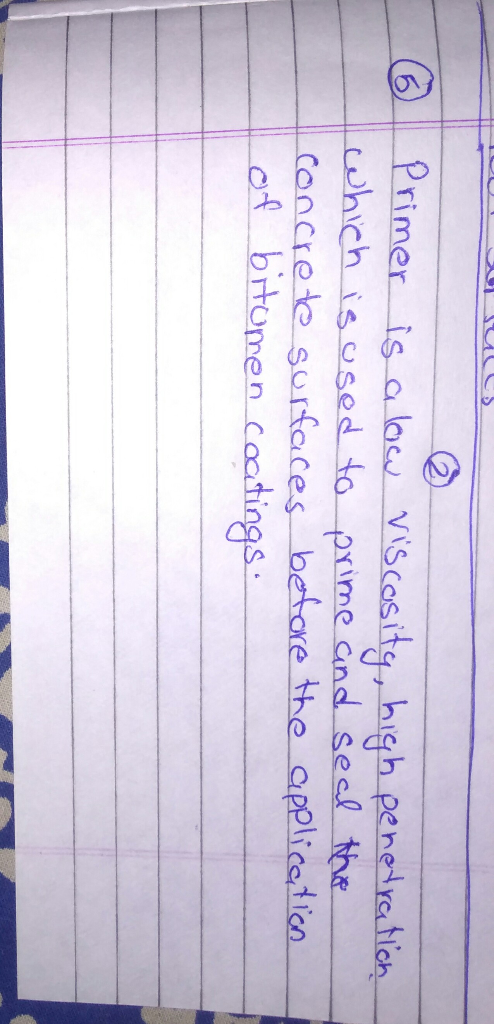 ②
⑤ Primer is a low viscosity, high penetration
which is used to prime and seal the
concrete surfaces before the application
of bitumen coatings.